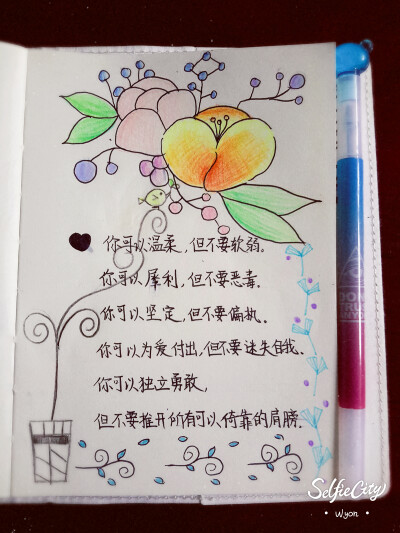 你可以温柔,但不要软弱.
你可以犀利,但不要恶毒.
你可以坚定,但不要偏执.
你可以为爱付出,但不要迷失自我.
你可以独立勇敢,
但不要推开所有可以倚靠的肩膀.
SelfieCity
Wyon